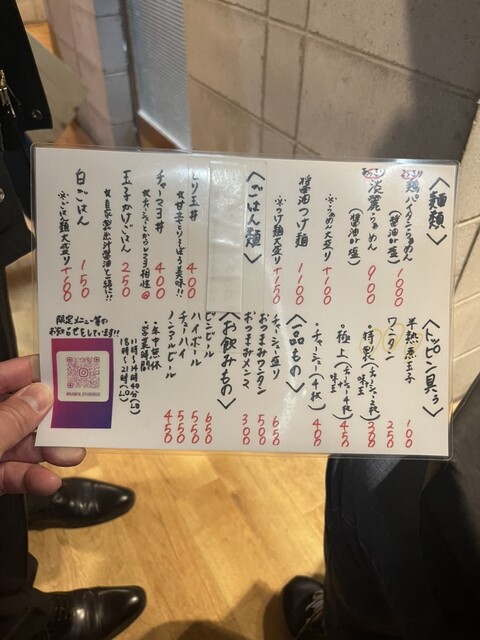 〈麺類〉
鶏パイタンらぁめん
(醤油or塩) 1000
淡麗らぁめん
(醤油or塩) 900
※らぁめん大盛り+100
醤油つけ麺 1100
※つけ麺大盛り+150
〈ごはん類〉
とり玉丼 400
★甘辛とりそぼろ美味!!
チャーマヨ丼 400
玉子かけごはん 250
★自家製出汁醤油と一緒に!!
白ごはん 150
※ごはん類大盛り+100
〈トッピング〉
半熟煮玉子 100
ワンタン 250
・特製 (チャーシュー2枚 味玉) 300
・極上 (チャーシュー4枚 味玉) 450
・チャーシュー(4枚) 400
〈一品もの〉
チャーシュー盛り 650
おつまみワンタン 500
おつまみメンマ 300
〈お飲みもの〉
ビンビール 650
ハイボール 550
チューハイ 550
ノンアルビール 450
・年中無休
・営業時間
11時〜14時40分(LO)
18時〜21時(LO)
限定メニュー等の
お知らせもしています!!